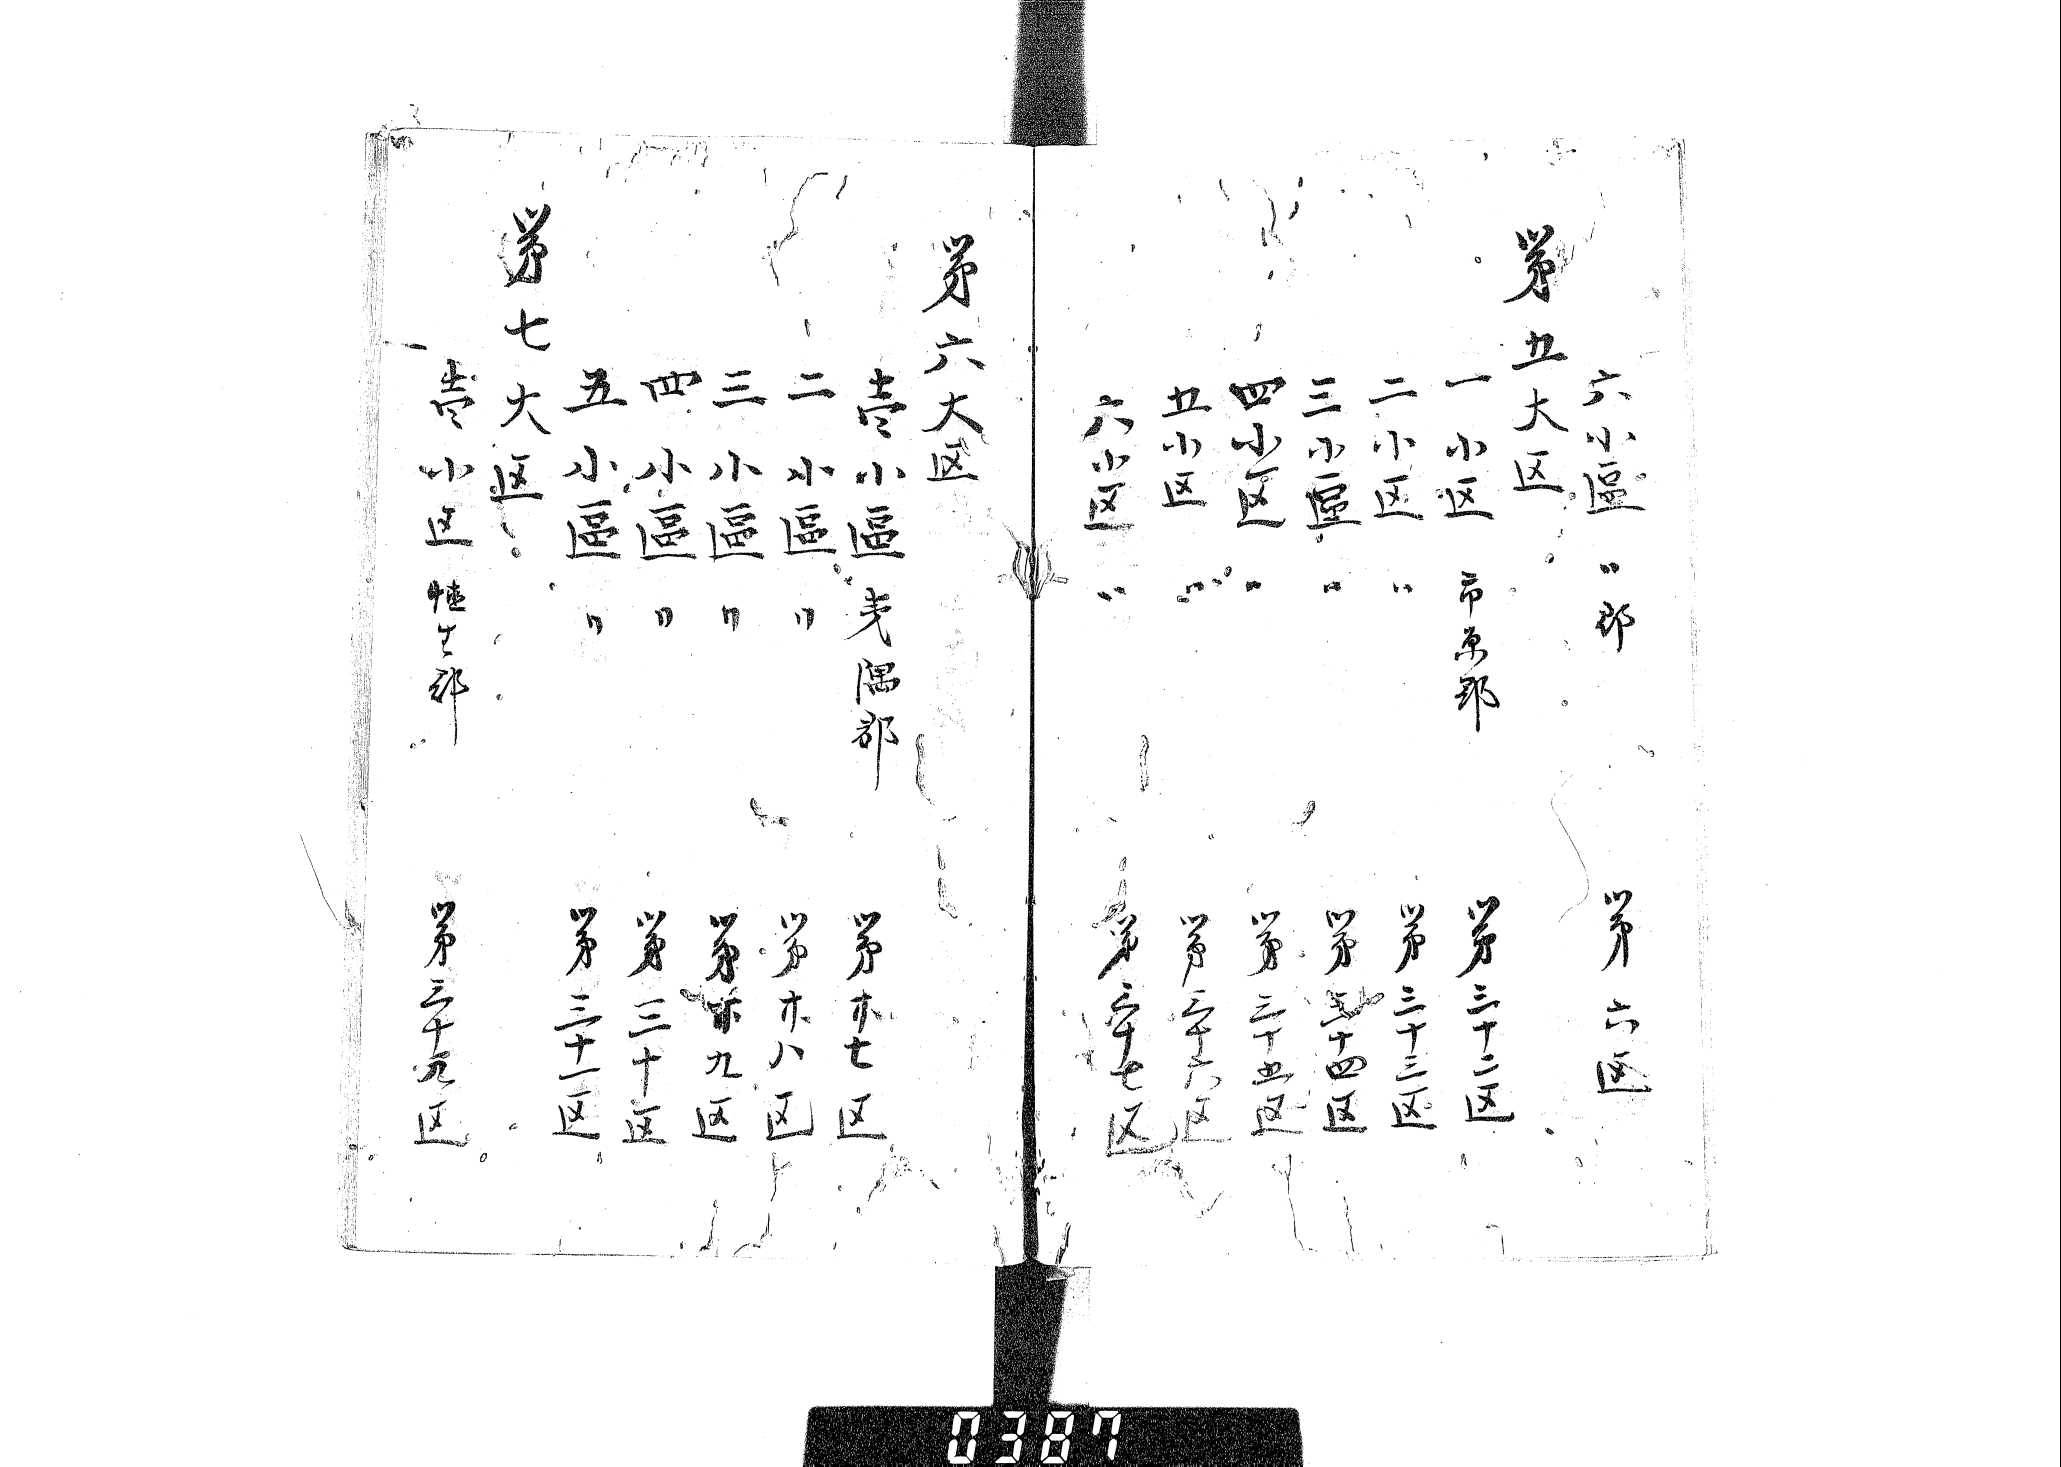 六小區 〃郡 第六区
第五大区
一小区 市原郡 第三十二区
二小区 〃 第三十三区
三小區 〃 第三十四区
四小区 〃 第三十五区
五小区 〃 第三十六区
六小区 〃 第三十七区
第六大区
壱小區 夷隅郡 第廿七区
二小區 〃 第廿八区
三小區 〃 第廿九区
四小區 〃 第三十区
五小區 〃 第三十一区
第七大区
壱小区 埴生郡 第三十九区
0387